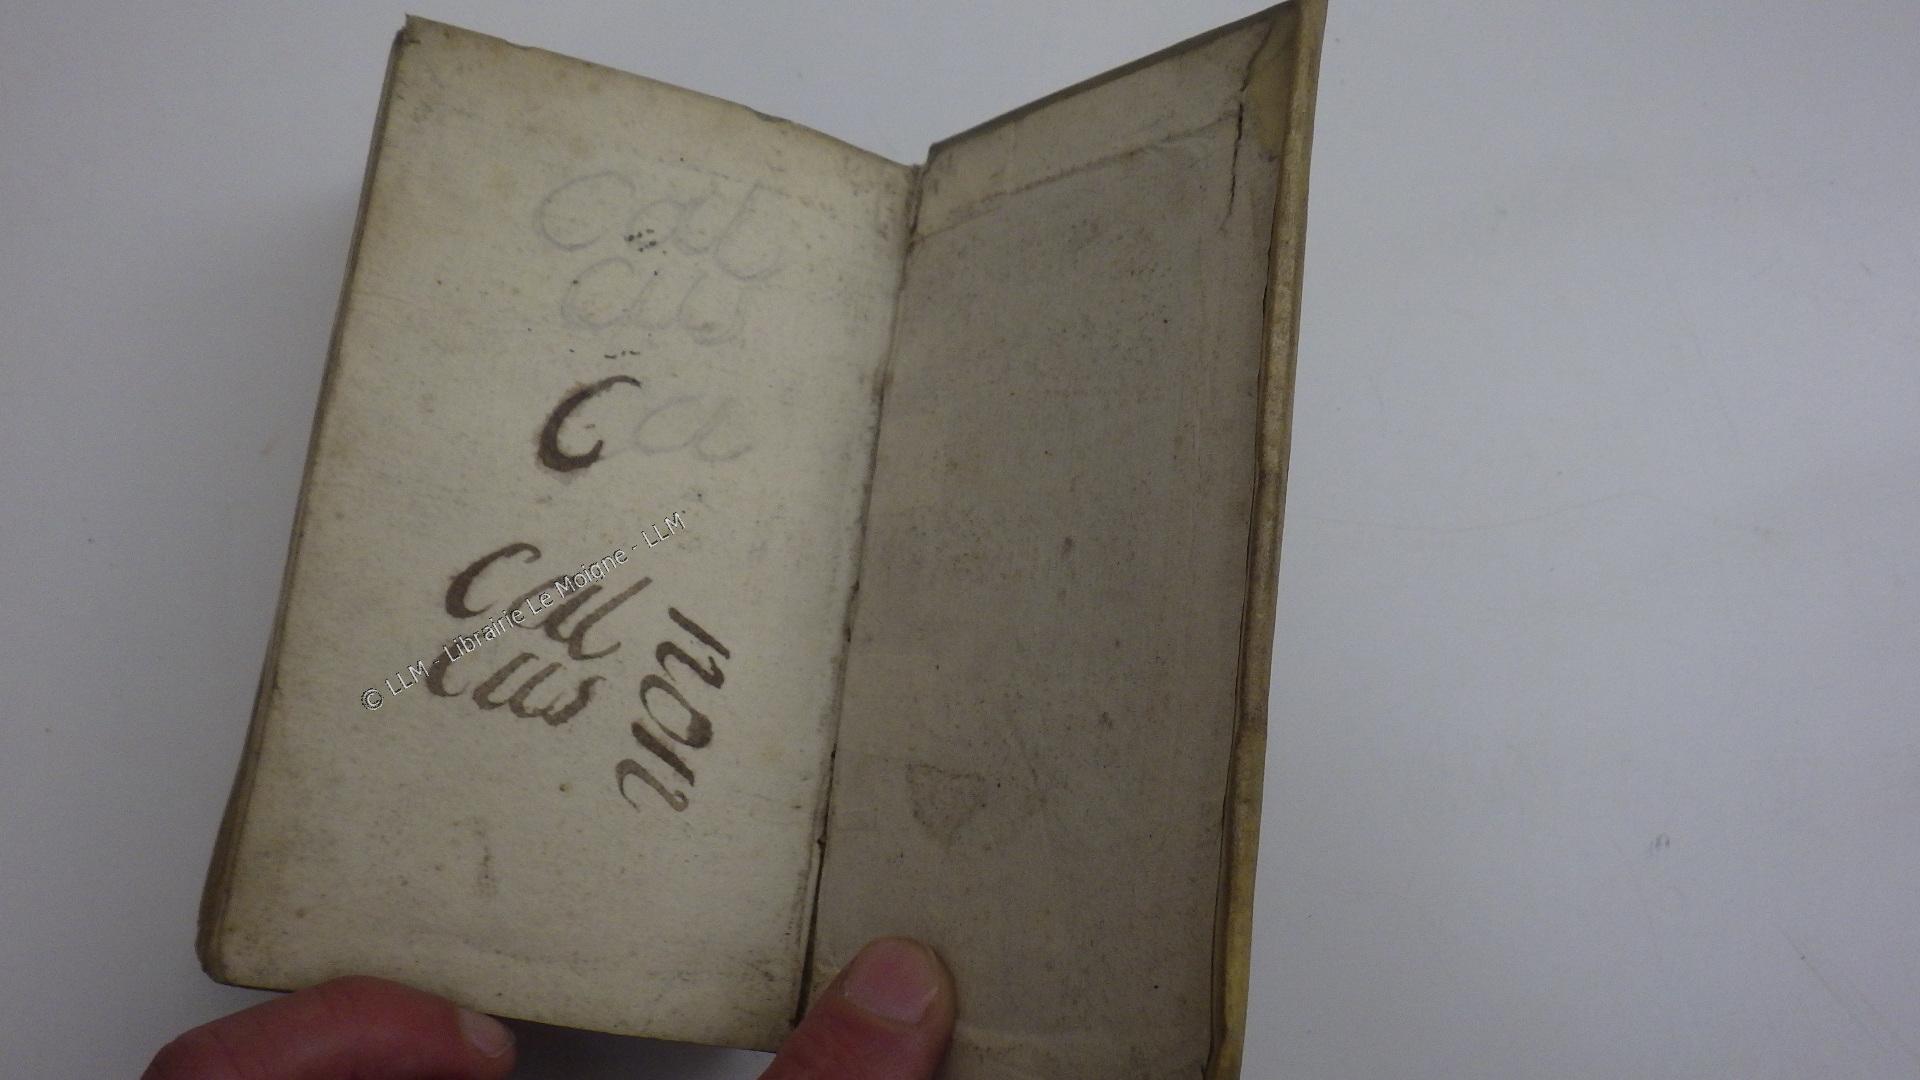 Cal
cus
Ca
Cal
cus
non
© LLM - Librairie Le Moigne - LLM